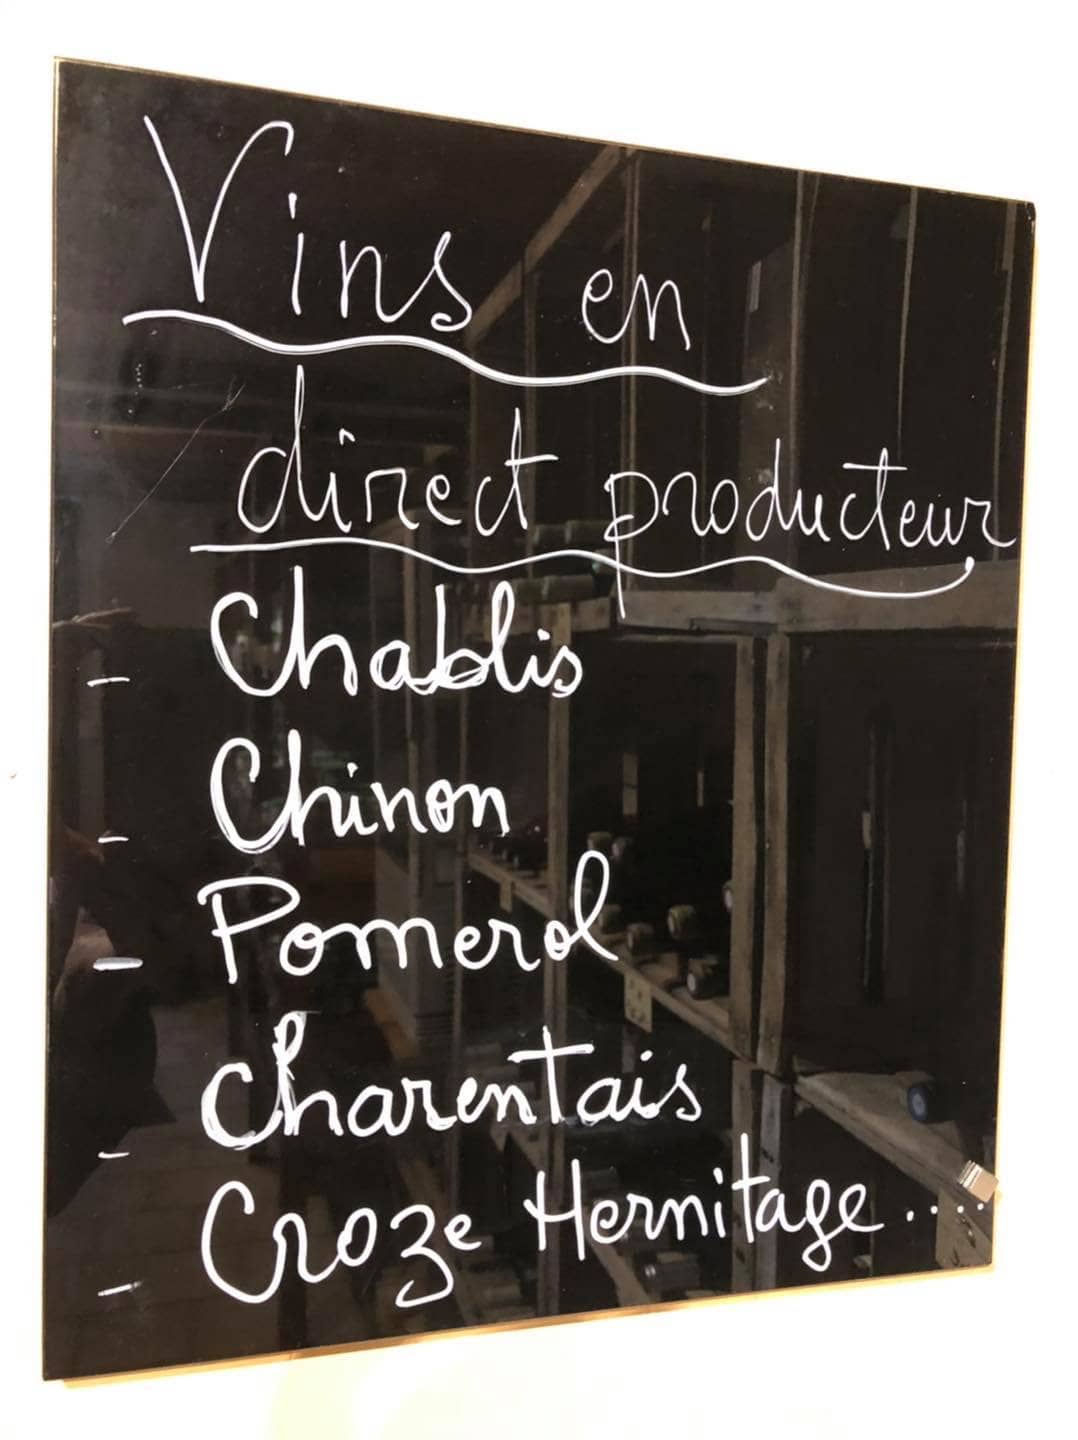 Vins en
direct producteur
- Chablis
- Chinon
- Pomerol
- Charentais
- Croze Hermitage.....